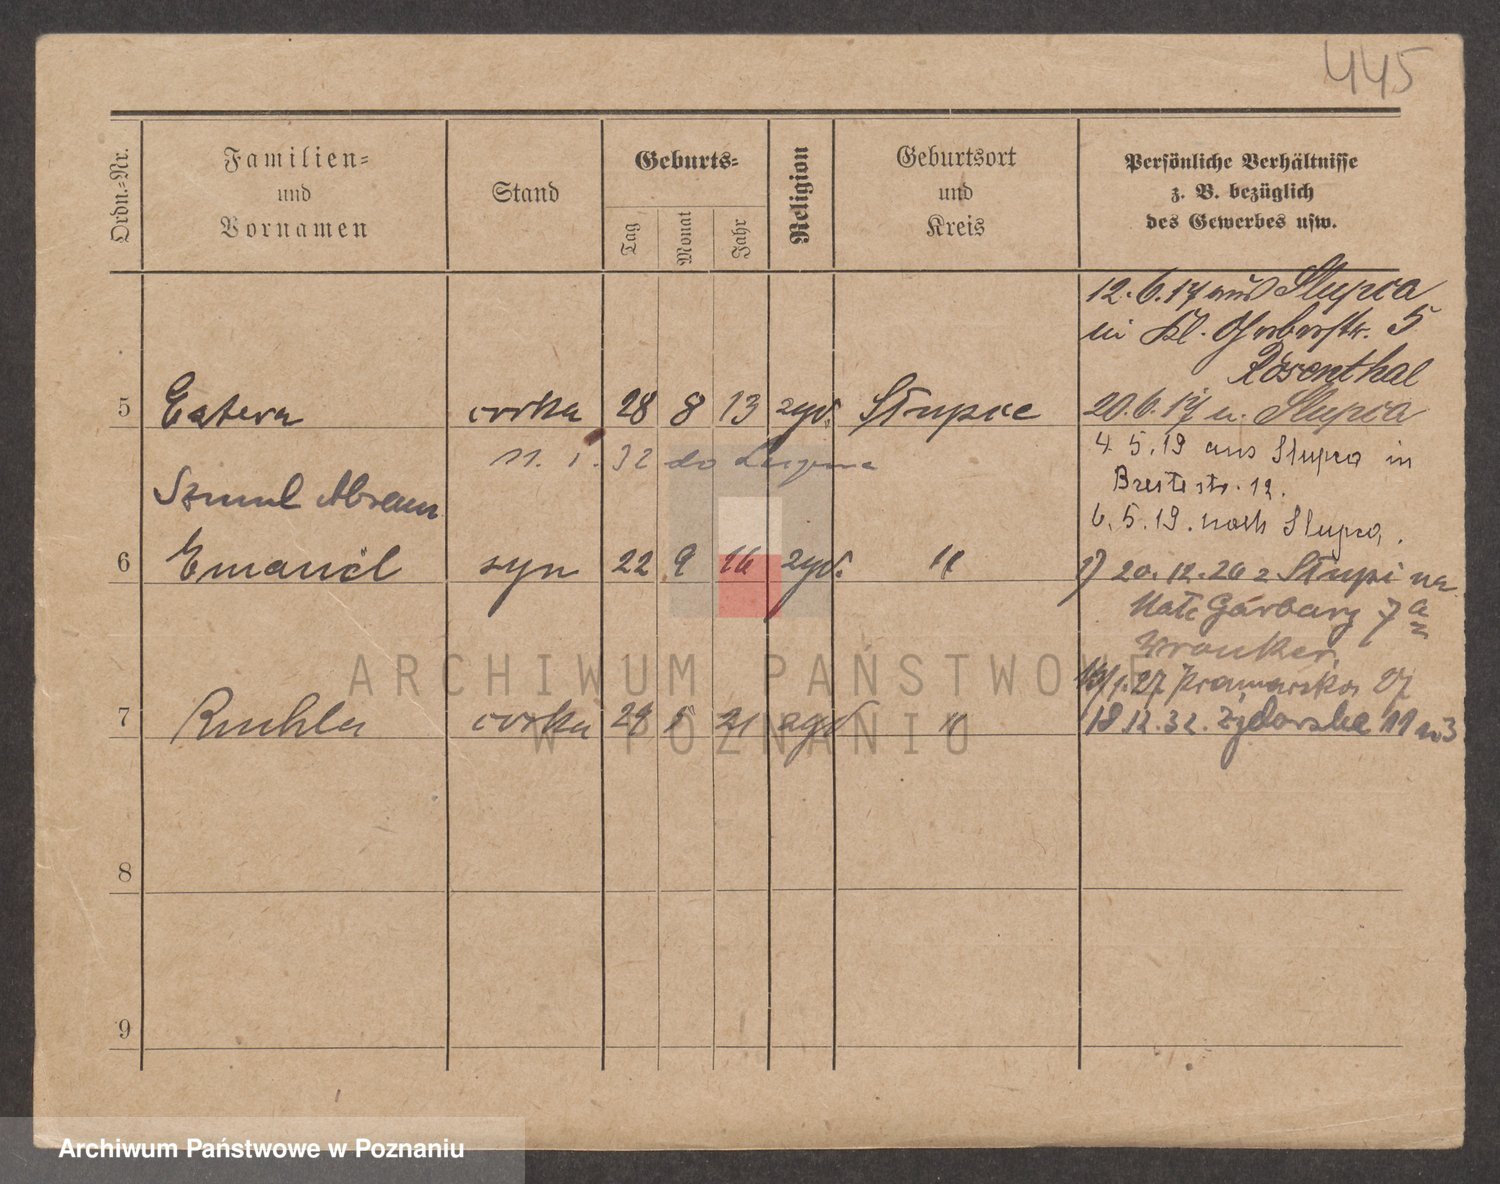 445
Ordn.=Nr.
Familien=
und
Vornamen
Stand
Geburts=
Tag
Monat
Jahr
Religion
Geburtsort
und
Kreis
Persönliche Verhältnisse
z. B. bezüglich
des Gewerbes usw.
12.6.17 aus Slupca
in Kl. Gerberstr. 5
Rosenthal
5 Estera córka 28 8 13 żyd. Słupce 20.6.17 n. Slupca
11. 1. 32 do
4.5.19 aus Slupca in
Szmul Abram
Brestestr. 12.
6.5.19. nach Slupca.
6 Emanuel syn 22 9 16 żyd. "
20.12.26 z Słupi na
Małe Garbary 7a
Wronker.
1.27 Kramarska
7 Ruchla córka 1 21 żyd "
18.12.32. Żydowska 11 m3
8
9
ARCHIWUM PAŃSTWOWE
W POZNANIU
Archiwum Państwowe w Poznaniu